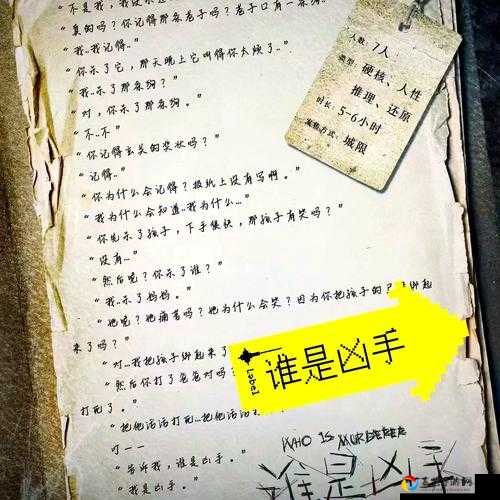 “不是我，我没杀
“真的吗？你记得那条巷子吗？巷子口有一条狗
“我..我记得..”
“你杀了它，那天晚上它叫得你太烦了..”
“我..杀了那条狗？”
“对，你杀了那条狗。”
“不..不”
“你记得玄关的奖状吗？”
“记得..”
“你为什么会记得？报纸上没有写啊。”
“我为什么会知道..我为什么...”
“你先杀了孩子，下手很快，那孩子有哭吗？”
“没有...”
“然后呢？你杀了谁？”
“我..杀了妈妈。”
“她呢？她痛苦吗？她为什么会哭？因为你把孩子的
绑起
来了吗？”
“对...我把孩子绑起来了
“然后你打了爸爸对吗？
打死了。”
“把他活活打死...把他活活
叮——
“告诉我，谁是凶手。”
“我是凶手。”
人数：7人
类型：硬核、人性
推理、还原
时长：5-6小时
发售方式：城限
Label
谁是凶手
WHO IS MURDERER
谁是凶手